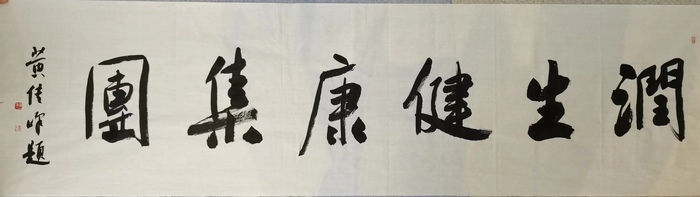 潤生健康集團
黄佳峰題